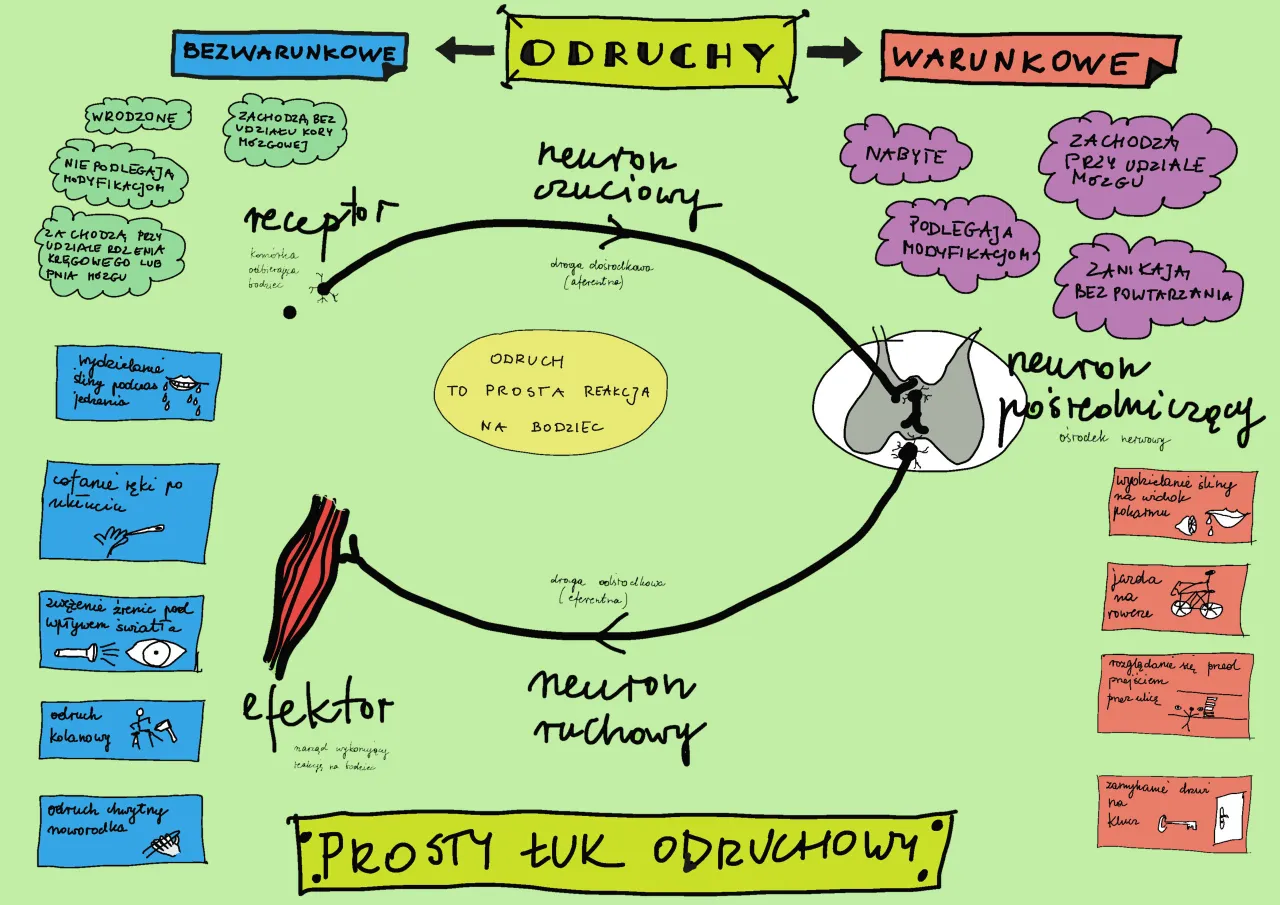 ODRUCHY
BEZWARUNKOWE
WARUNKOWE
WRODZONE
ZACHODZĄ BEZ
UDZIAŁU KORY
MÓZGOWEJ
NIE PODLEGAJĄ
MODYFIKACJOM
ZACHODZĄ PRZY
UDZIALE RDZENIA
KRĘGOWEGO LUB
PNIA MÓZGU
NABYTE
ZACHODZĄ
PRZY UDZIALE
MÓZGU
PODLEGAJĄ
MODYFIKACJOM
ZANIKAJĄ
BEZ POWTARZANIA
receptor
komórka
odbierająca
bodziec
neuron
czuciowy
droga dośrodkowa
(aferentna)
ODRUCH
TO PROSTA REAKCJA
NA BODZIEC
neuron
pośredniczący
ośrodek nerwowy
droga odśrodkowa
(eferentna)
neuron
ruchowy
efektor
narząd wykonujący
reakcję na bodziec
wydzielanie
śliny podczas
jedzenia
cofanie ręki po
ukłuciu
zwężenie źrenic pod
wpływem światła
odruch
kolanowy
odruch chwytny
noworodka
wydzielanie śliny
na widok
pokarmu
jazda
na
rowerze
rozglądanie się przed
przejściem
przez ulicę
zamykanie drzwi
na
klucz
PROSTY ŁUK ODRUCHOWY